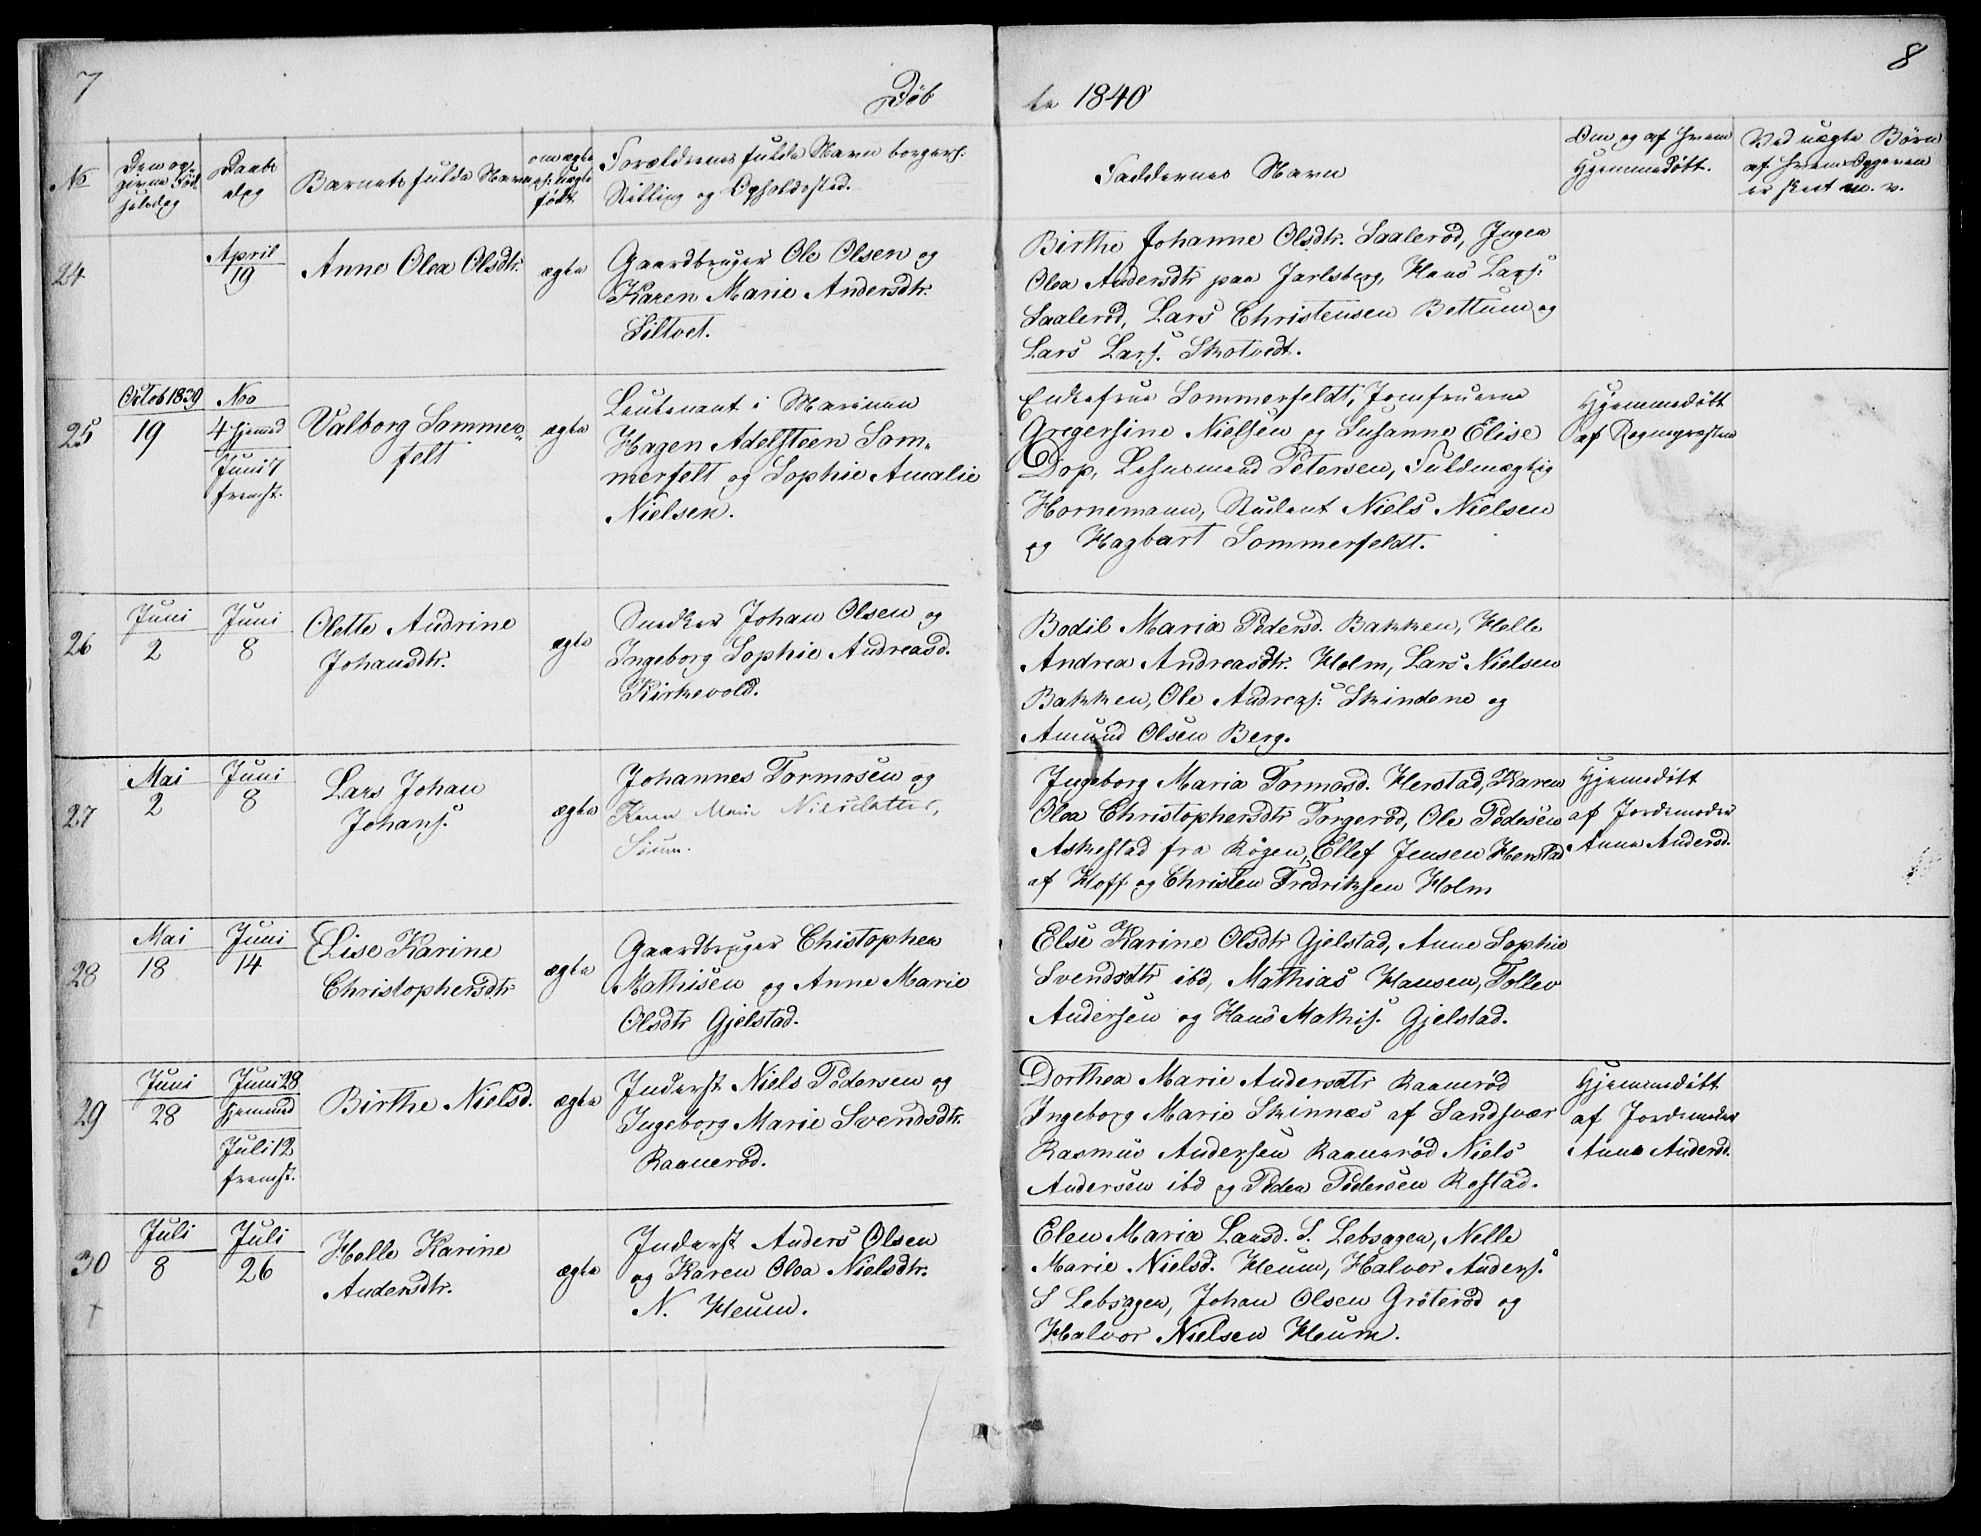 7
8
Döb
te 1840
No
Den op-
givne Föd
selsdag
Daabs
dag
Barnets fulde Navn
om ægte
el. uægte
født.
Forældrenes fulde Navn borgerl.
Stilling og Opholdssted.
Faddernes Navn
Om og af hvem
Hjemmedöbt.
Ved uægte Børn
af hvem Opgaven
er skeet m. v.
24
April
19
Anne Olea Olsdtr.
ægte
Gaardbruger Ole Olsen og
Karen Marie Andersdtr.
Siltvet.
Birthe Johanne Olsdtr. Saaleröd, Ingen
Olea Andersdtr paa Jarlsberg, Hans Lars.
Saaleröd, Lars Christensen Bettum og
Lars Lars. Skotvedt.
25
Octob 1839
19
No
4 Hjemmed
Juni 7
fremst.
Valborg Sommer-
felt
ægte
Leutenant i Marinen
Hagen Adelsteen Som-
merfelt og Sophie Amalie
Nielsen.
Enkefrue Sommerfeldt, Jomfruerne
Gregersine Nielsen og Susanne Elise
Dop, Lehnsmand Petersen, Fuldmægtig
Hornemann, Student Niels Nielsen
og Hagbart Sommerfeldt.
Hjemmedöbt
af Sognepræsten
26
Juni
2
Juni
8
Olette Andrine
Johansdtr.
ægte
Snedker Johan Olsen og
Ingeborg Sophie Andreasd.
Kirkevold.
Bodil Maria Pedersd. Bakken, Helle
Andrea Andreasdtr. Holm, Lars Nielsen
Bakken, Ole Andreas. Skindene og
Amund Olsen Berg.
27
Mai
2
Juni
8
Lars Johan
Johans.
ægte
Johannes Tormosen og
Karen Marie Nielsdatter,
Sium.
Ingeborg Maria Tormosd. Herstad, Karen
Olea Christophersdtr Torgeröd, Ole Pedesen
Askestad fra Rögen, Ellef Jensen Herstad
af Hoff og Christen Fredriksen Holm
Hjemmedöbt
af Jordemoder
Anna Andersd.
28
Mai
18
Juni
14
Elise Karine
Christophersdtr
ægte
Gaardbruger Chistopher
Mathisen og Anne Marie
Olsdtr Gjelstad.
Else Karine Olsdtr Gjelstad, Anne Sophie
Svendsdtr ibd, Mathias Hansen, Tollev
Andersen og Hans Mathis. Gjelstad.
29
Juni
28
Juni 28
Hjemmed
Juli 12
fremst.
Birthe Nielsd.
ægte
Inderst Niels Pedersen og
Ingeborg Marie Svendsdtr.
Raaneröd.
Dorthea Marie Andersdtr Raaneröd
Ingeborg Marie Skinnæs af Sandsvær
Rasmus Andersen Raaneröd Niels
Andersen ibd og Peder Pedersen Restad.
Hjemmedöbt
af Jordemoder
Anna Andersd.
30
Juli
8
Juli
26
Helle Karine
Andersdtr.
ægte
Inderst Anders Olsen
og Karen Olea Nielsdtr.
N. Heum.
Elen Maria Larsd. S. Lebsagen, Nelle
Marie Nielsd. Heum, Halvor Anders.
S Lebsagen, Johan Olsen Gröteröd og
Halvor Nielsen Heum.